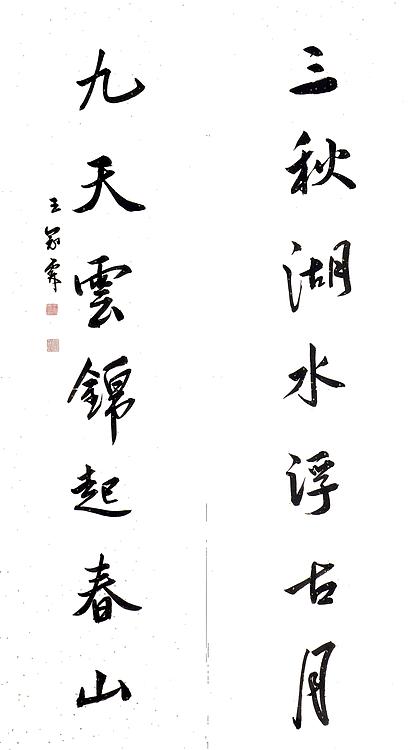 三秋湖水浮古月
九天雲錦起春山
王